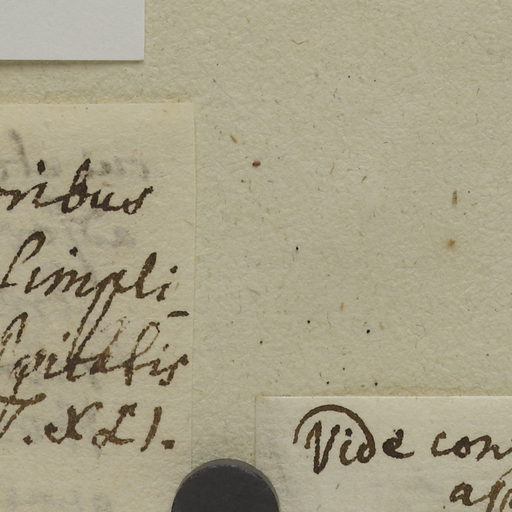 oribus
simpli
spitalis
T. XLI.
Vide con